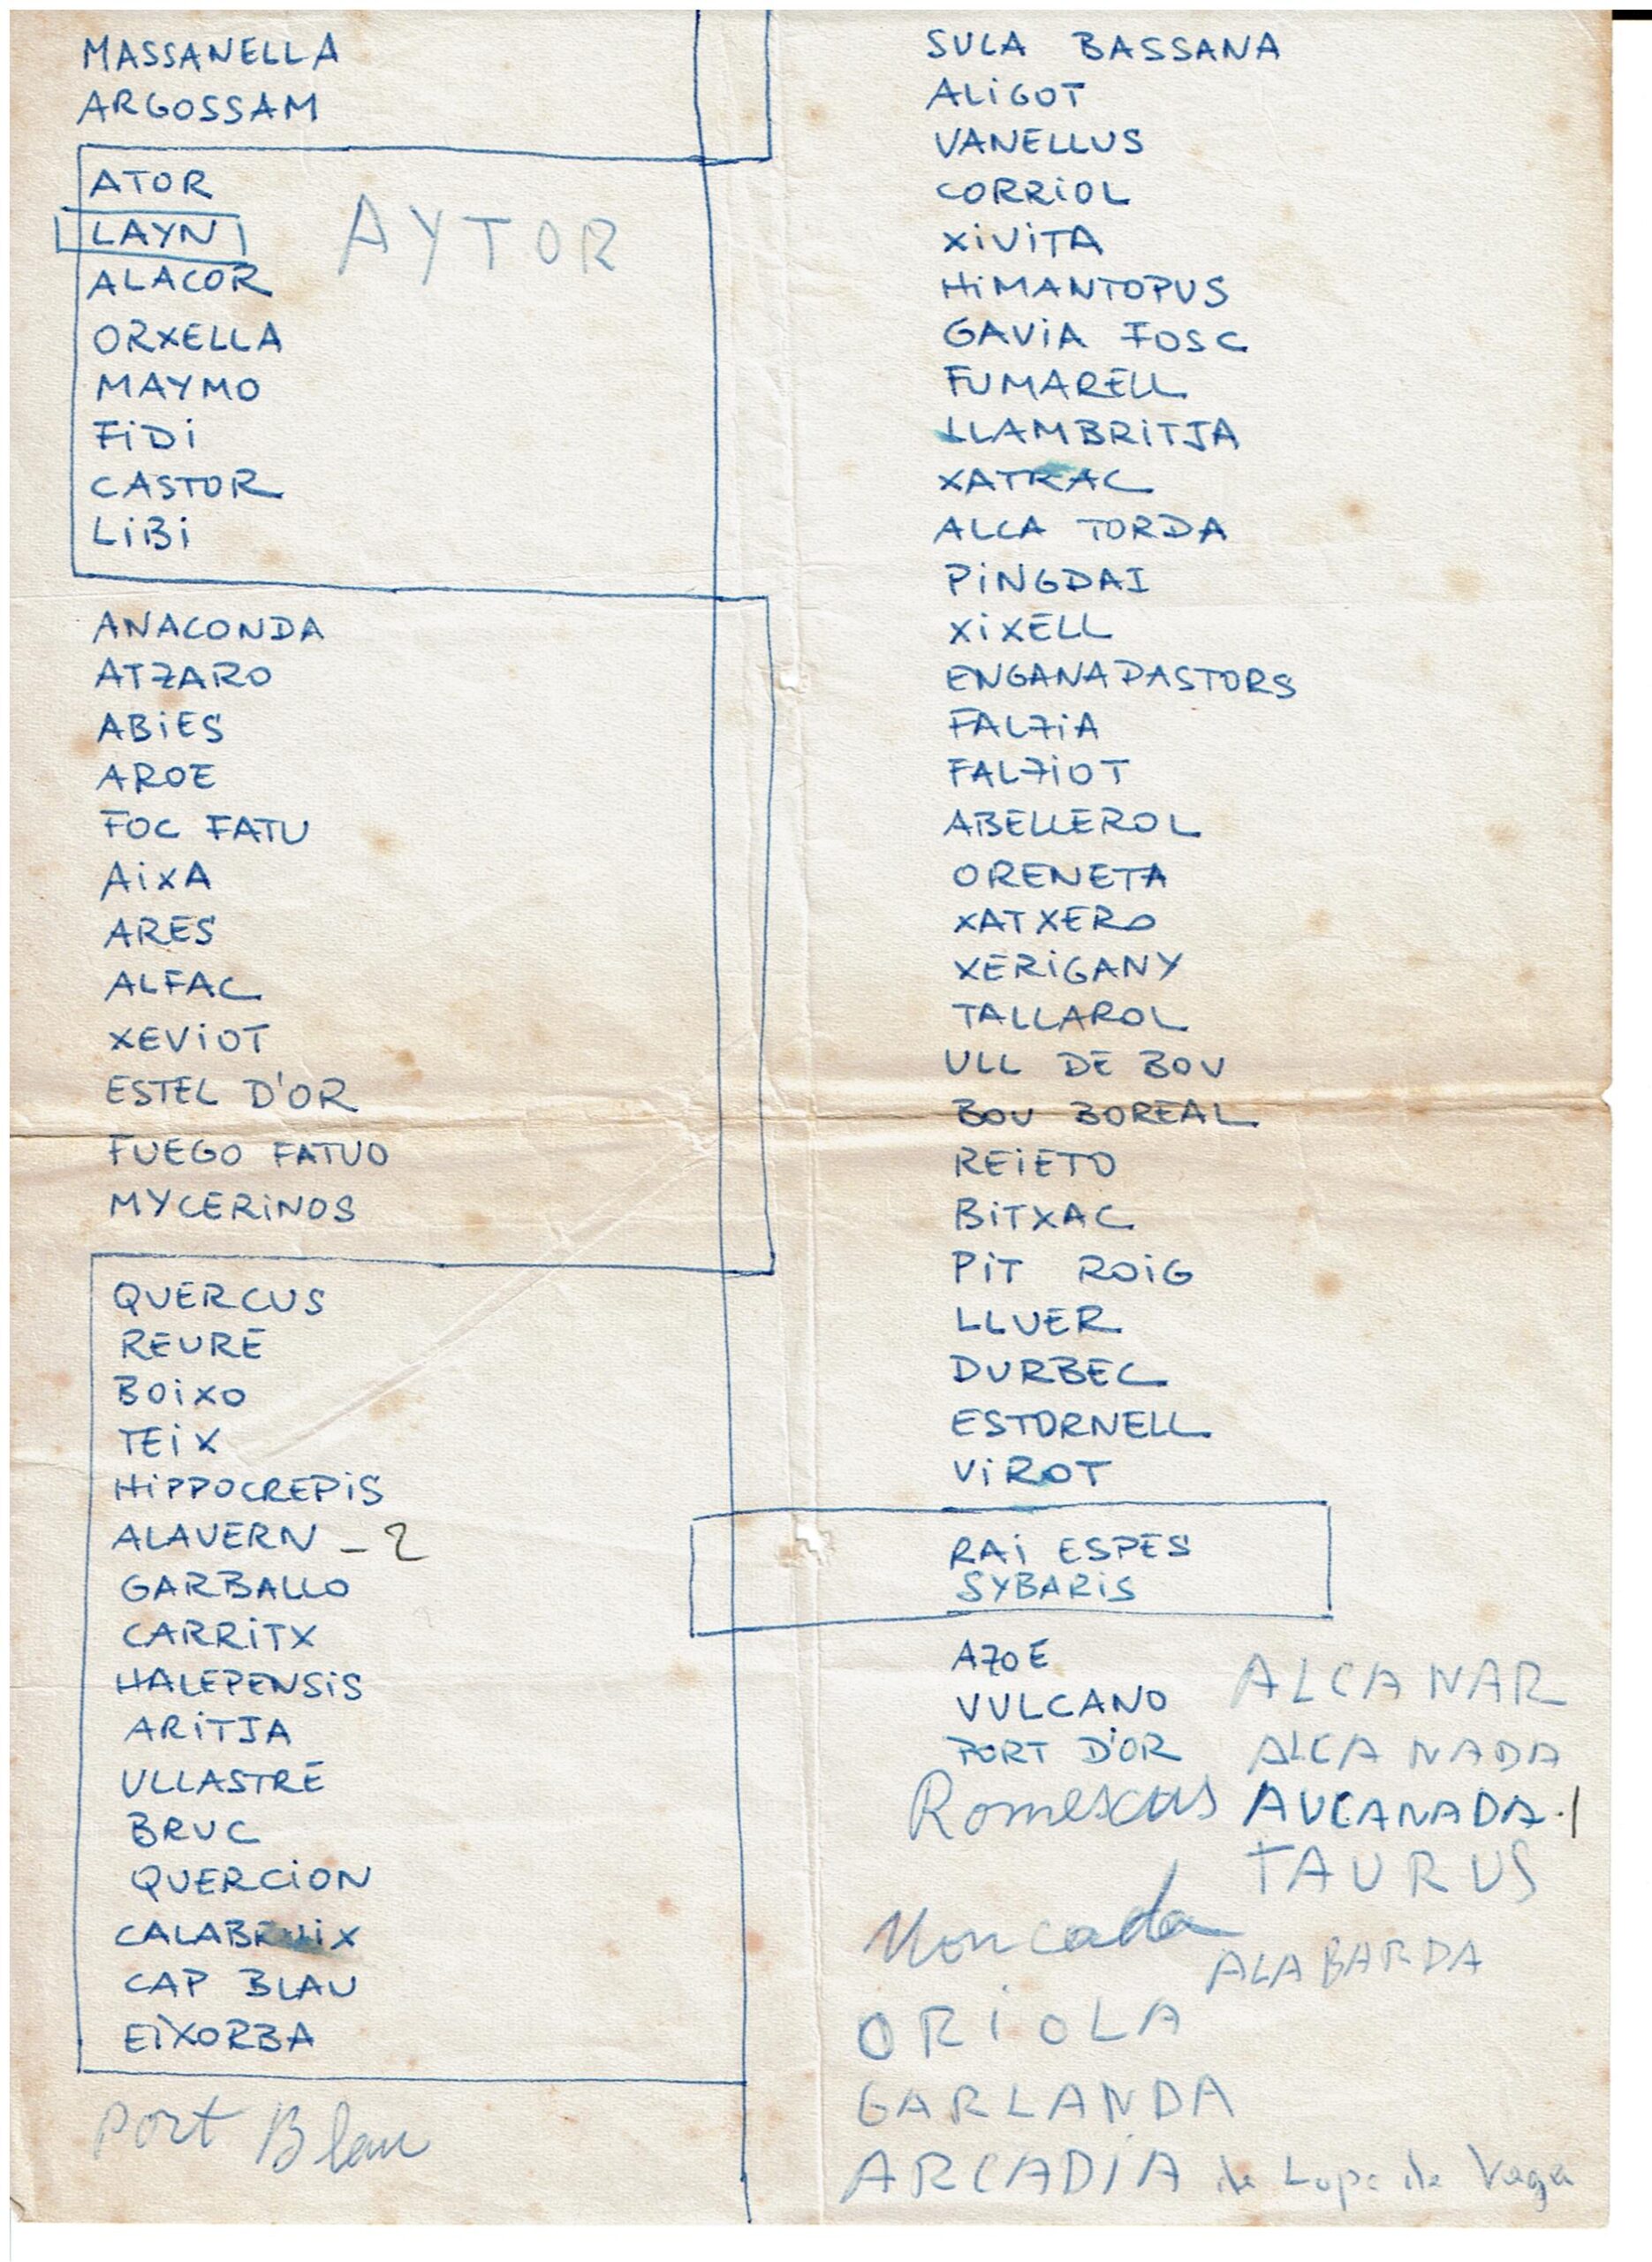 MASSANELLA
ARGOSSAM
ATOR
LAYN
AYTOR
ALACOR
ORXELLA
MAYMO
FiDi
CASTOR
LiBi
ANACONDA
ATZARO
ABiES
AROE
FOC FATU
AiXA
ARES
ALFAC
XEViOT
ESTEL D'OR
FUEGO FATUO
MYCERiNOS
QUERCUS
REURE
BOiXO
TEiX
HiPPOCREPiS
ALAVERN - 2
GARBALLO
CARRiTX
HALEPENSiS
ARiTJA
ULLASTRE
BRUC
QUERCiON
CALABRUiX
CAP BLAU
EiXORBA
Port Blau
SULA BASSANA
ALiGOT
VANELLUS
CORRiOL
XiViTA
HiMANTOPUS
GAViA FOSC
FUMARELL
LLAMBRiTJA
XATRAC
ALCA TORDA
PiNGDAI
XiXELL
ENGANAPASTORS
FALZiA
FALZiOT
ABELLEROL
ORENETA
XATXERO
XERiGANY
TALLAROL
ULL DE BOU
BOU BOREAL
REiETO
BiTXAC
PiT ROiG
LLUER
DURBEC
ESTORNELL
ViROT
RAi ESPES
SYBARiS
AZOE
VULCANO
PORT D'OR
ALCANAR
ALCANADA
Romescus AUCANADA.1
TAURUS
Moncada
ALABARDA
ORiOLA
GARLANDA
ARCADIA de Lope de Vega